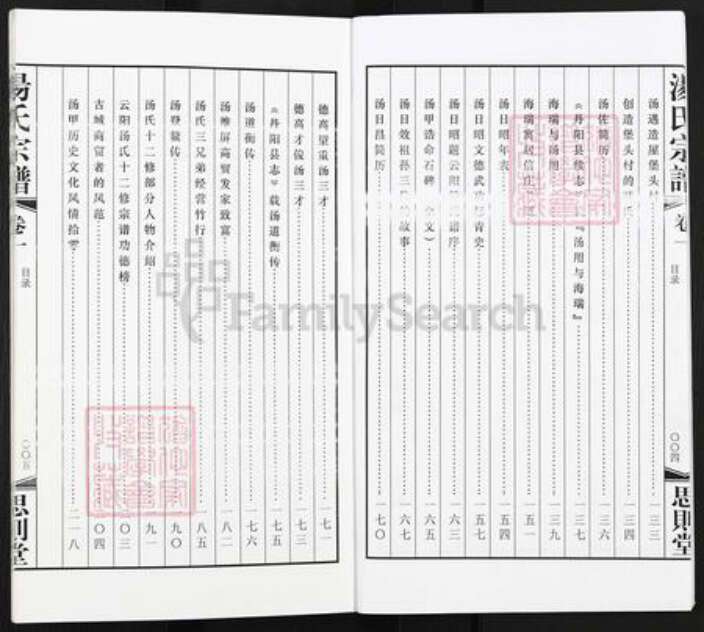 湯氏宗譜
卷一
目录
〇〇四
思則堂
汤遇造屋堡头村 一三三
创造堡头村的 一三四
汤佐简历 一三六
《丹阳县续志 『汤用与海瑞』 一三七
海瑞与汤用 一三九
海瑞寓起信庄 一五一
汤日昭年表 一五四
汤日昭文德武 青史 一五七
汤日昭题云阳 谱序 一六三
汤甲诰命石碑 文） 一六五
汤日效祖孙三 故事 一六七
汤日昌简历 一七〇
德高望重汤三才 一七一
德高才俊汤三才 一七三
《丹阳县志》载汤道衡传 一七五
汤道衡传 一七六
汤唯屏商贸发家致富 一八二
汤氏三兄弟经营竹行 一八五
汤登鳌传 一九〇
汤氏十二修部分人物介绍 一九一
云阳汤氏十二修宗谱功德榜 〇三
古城商贸者的风范 〇四
汤甲历史文化风情拾零 二一八
湯氏宗譜
卷一
目录
〇〇五
思則堂
FamilySearch